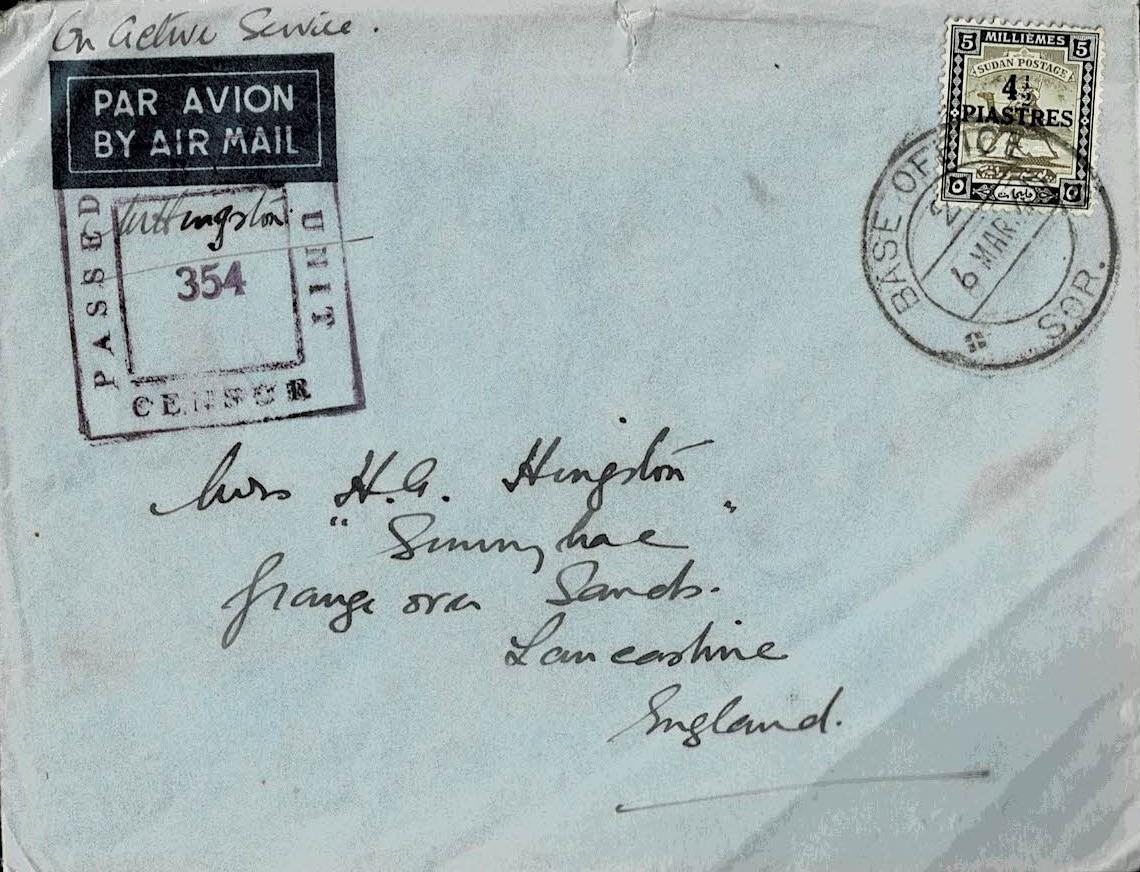 On Active Service.
PAR AVION
BY AIR MAIL
PASSED
UNIT
CENSOR
Hingston
354
5 MILLIÈMES 5
SUDAN POSTAGE
4½
PIASTRES
٥ ٥
BASE OFFICE
6 MAR
S.O.R.
Mrs H.G. Hingston
"Sunnybrae"
Grange over Sands.
Lancashire
England.